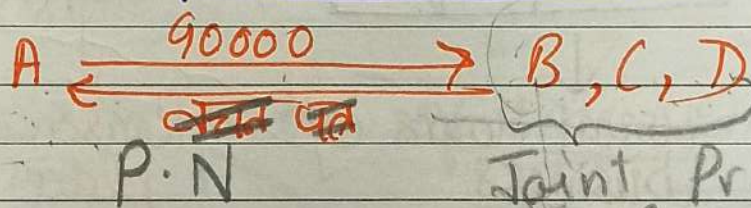 90000
A B, C, D
वचन पत्र
P.N Joint Pr